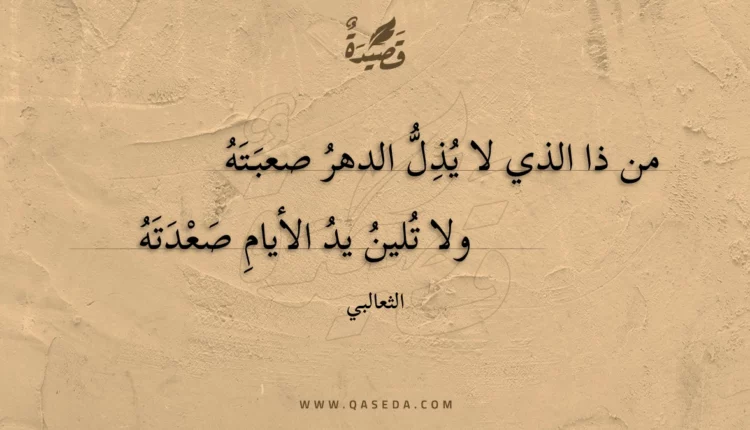 قَصِيدَةٌ
من ذا الذي لا يُذِلُّ الدهرُ صعبَتَهُ
ولا تُلينُ يدُ الأيامِ صَعْدَتَهُ
الثعالبي
WWW.QASEDA.COM